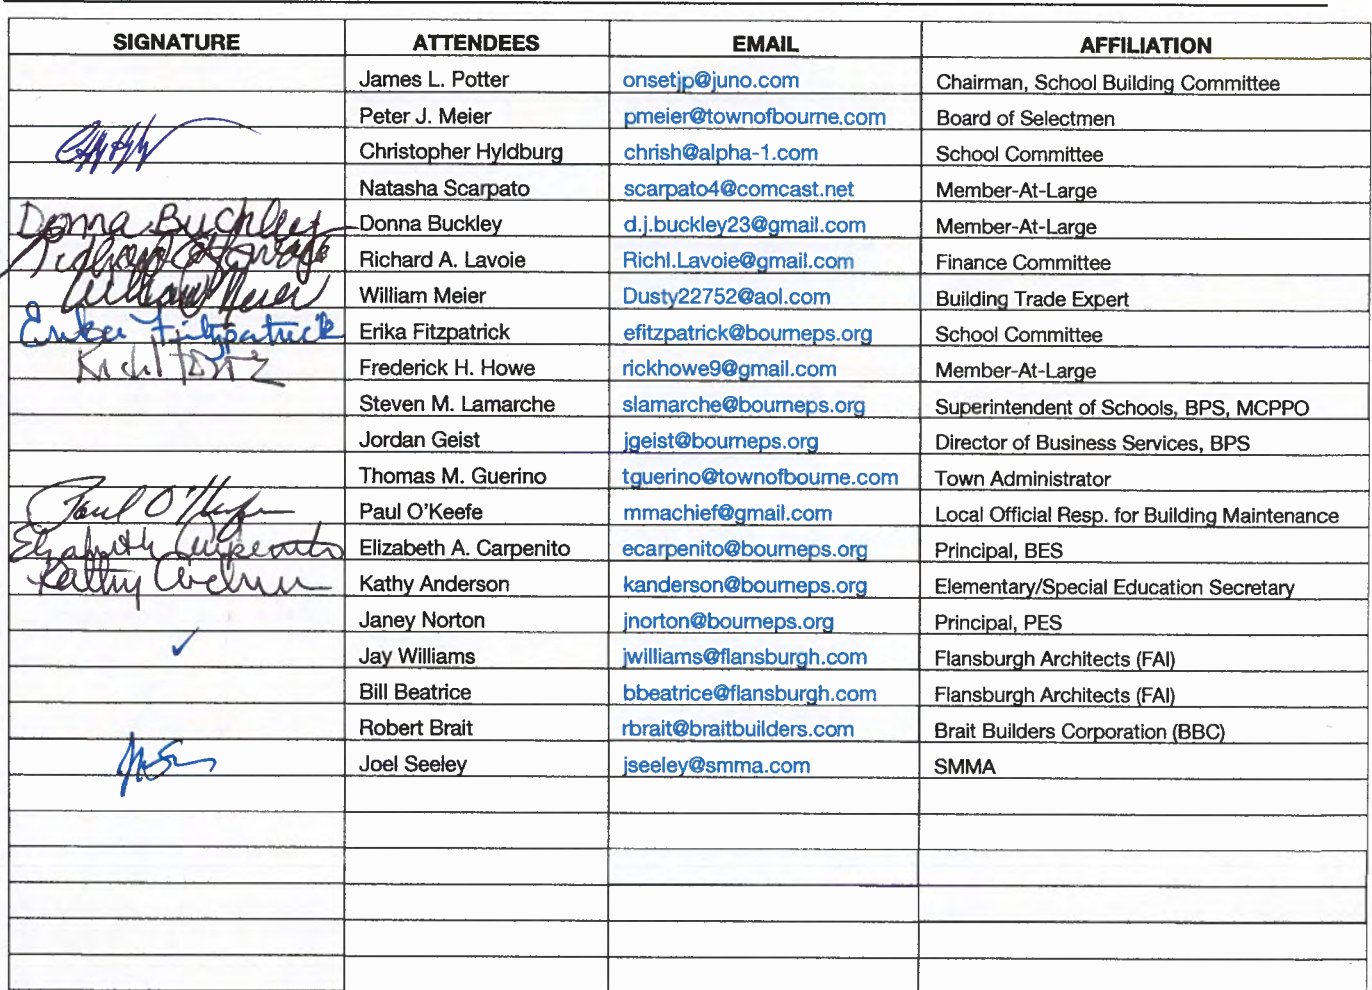 SIGNATURE ATTENDEES EMAIL AFFILIATION
James L. Potter onsetjp@juno.com Chairman, School Building Committee
Peter J. Meier pmeier@townofbourne.com Board of Selectmen
Christopher Hyldburg chrish@alpha-1.com School Committee
Natasha Scarpato scarpato4@comcast.net Member-At-Large
Donna Buckley Donna Buckley d.j.buckley23@gmail.com Member-At-Large
Richard A. Lavoie Richl.Lavoie@gmail.com Finance Committee
William Meier William Meier Dusty22752@aol.com Building Trade Expert
Erika Fitzpatrick Erika Fitzpatrick efitzpatrick@bourneps.org School Committee
Frederick H. Howe rickhowe9@gmail.com Member-At-Large
Steven M. Lamarche slamarche@bourneps.org Superintendent of Schools, BPS, MCPPO
Jordan Geist jgeist@bourneps.org Director of Business Services, BPS
Thomas M. Guerino tguerino@townofbourne.com Town Administrator
Paul O'Keefe Paul O'Keefe mmachief@gmail.com Local Official Resp. for Building Maintenance
Elizabeth Carpenito Elizabeth A. Carpenito ecarpenito@bourneps.org Principal, BES
Kathy Anderson Kathy Anderson kanderson@bourneps.org Elementary/Special Education Secretary
Janey Norton jnorton@bourneps.org Principal, PES
✓ Jay Williams jwilliams@flansburgh.com Flansburgh Architects (FAI)
Bill Beatrice bbeatrice@flansburgh.com Flansburgh Architects (FAI)
Robert Brait rbrait@braitbuilders.com Brait Builders Corporation (BBC)
Joel Seeley jseeley@smma.com SMMA